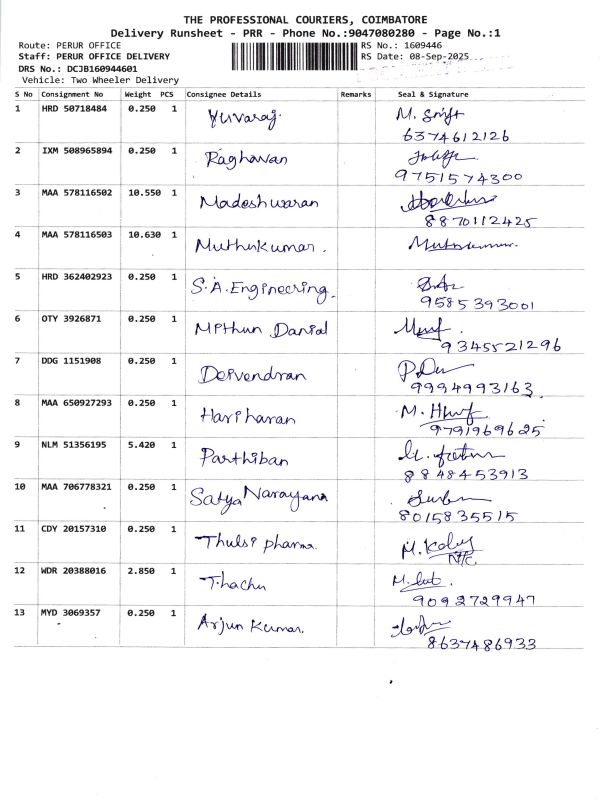 THE PROFESSIONAL COURIERS, COIMBATORE
Delivery Runsheet - PRR - Phone No.:9047080280 - Page No.:1
Route: PERUR OFFICE RS No.: 1609446
Staff: PERUR OFFICE DELIVERY RS Date: 08-Sep-2025
DRS No.: DCJB160944601
Vehicle: Two Wheeler Delivery
S No Consignment No Weight PCS Consignee Details Remarks Seal & Signature
1 HRD 50718484 0.250 1 Yuvaraj
6374612126
2 IXM 508965894 0.250 1 Raghavan
9751574300
3 MAA 578116502 10.550 1 Madeshwaran
8870112425
4 MAA 578116503 10.630 1 Muthukumar.
5 HRD 362402923 0.250 1 S.A.Engineering.
9585393001
6 OTY 3926871 0.250 1 Mithun Danial
9345521296
7 DDG 1151908 0.250 1 Deivendran
9994993163
8 MAA 650927293 0.250 1 Hariharan
9791969625
9 NLM 51356195 5.420 1 Parthiban
8848453913
10 MAA 706778321 0.250 1 Satya Narayana
8015835515
11 CDY 20157310 0.250 1 Thulsi pharma.
12 WDR 20388016 2.850 1 T.hachu
9092729947
13 MYD 3069357 0.250 1 Arjun Kumar.
8637486933